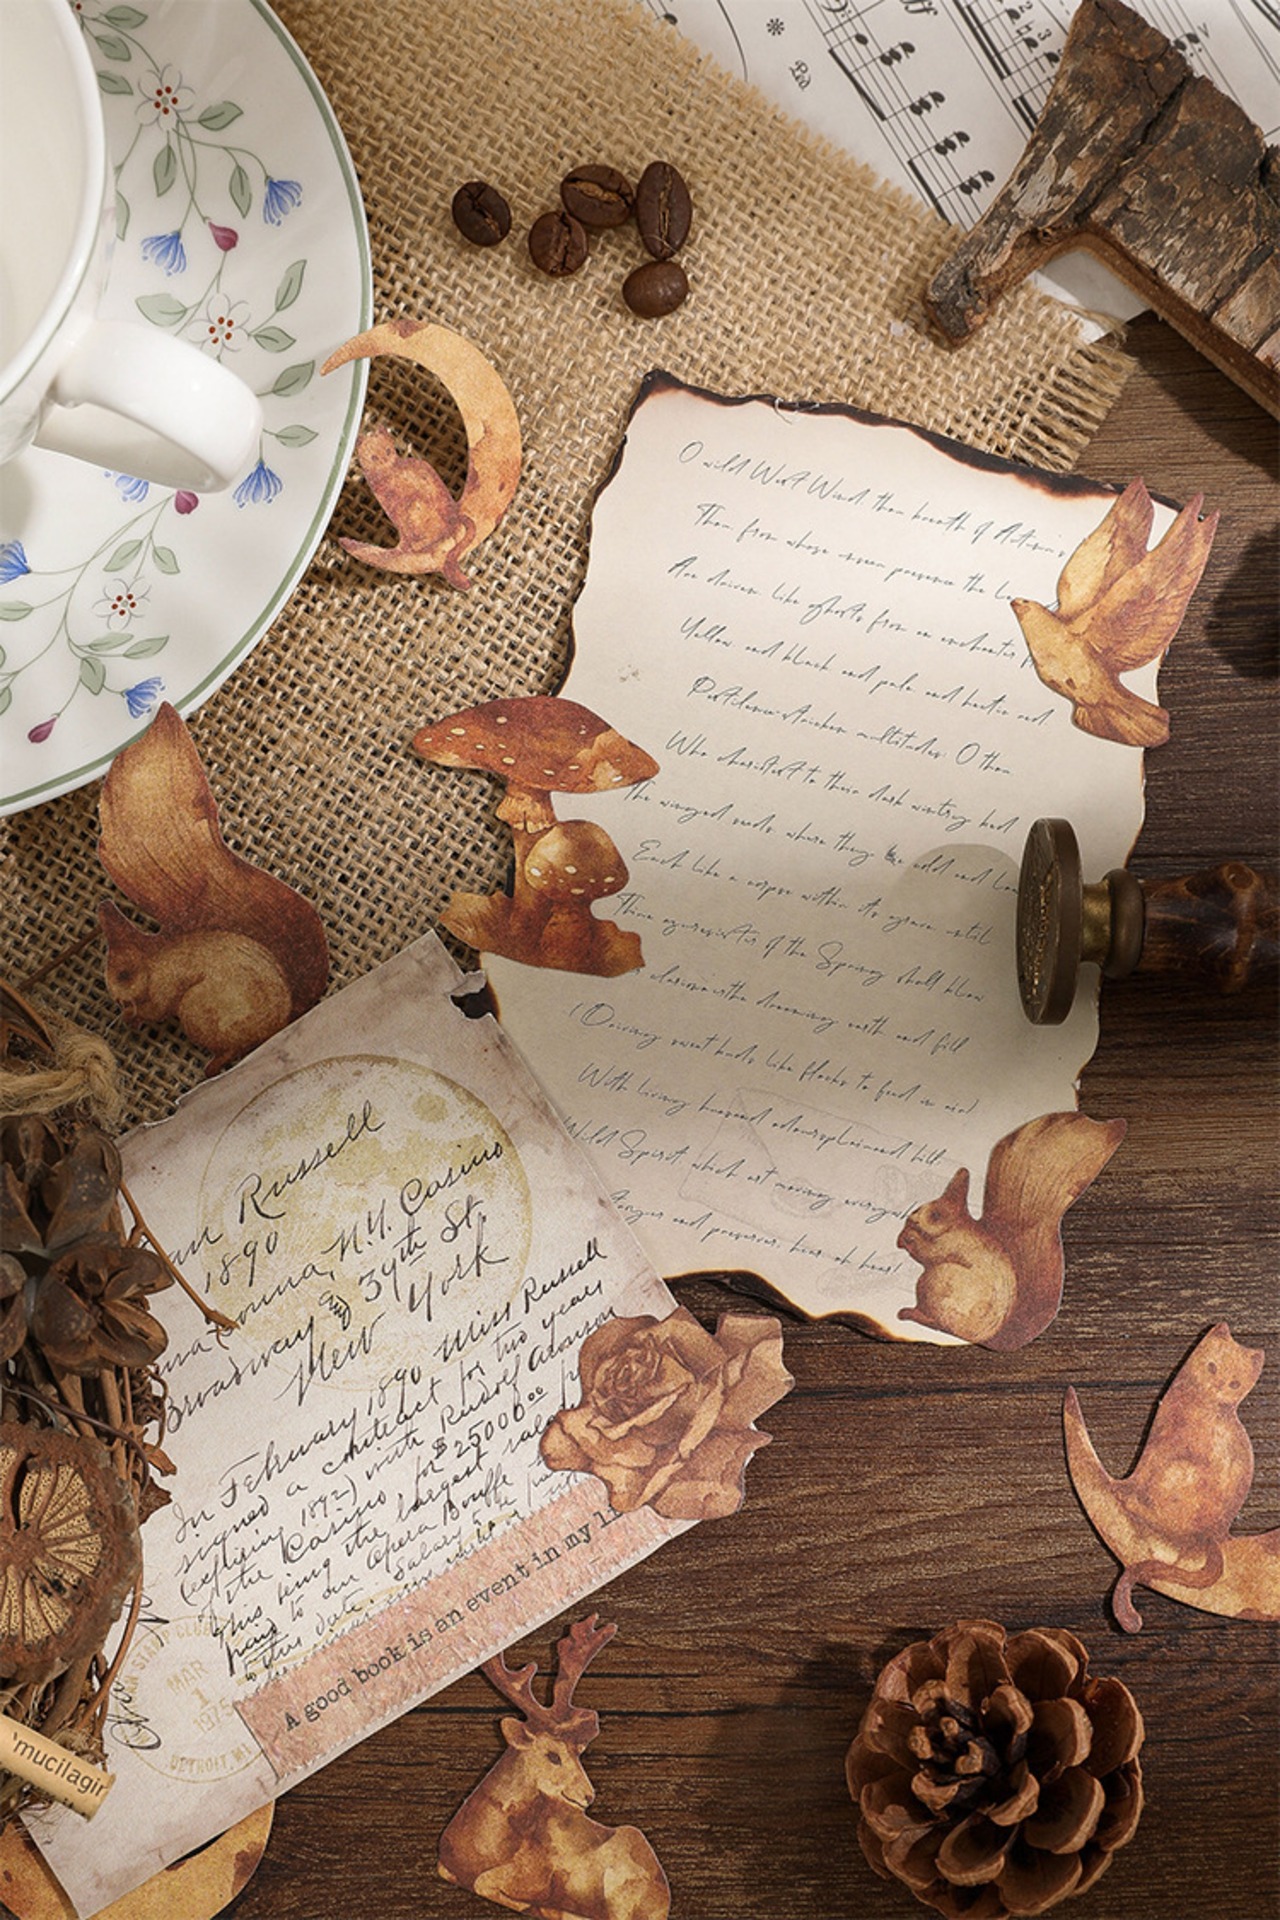 O wild West Wind, thou breath of Autumn's
Thou, from whose unseen presence the
Are driven, like ghosts from an enchanter
Yellow and black and pale and hectic red
Pestilence-stricken multitudes: O thou
Who chariotest to their dark wintry bed
The winged seeds, where they lie cold and
Each like a corpse within its grave, until
Thine azure sister of the Spring shall blow
clarion o'er the dreaming earth and fill
(Driving sweet buds like flocks to feed in air)
With living hues and odours plain and hill:
Wild Spirit, which art moving
and preserver; hear, oh hear!
Russell
1890
N.Y. Casino
Broadway and 39th St.
New York
In February 1890 Miss Russell
signed a contract for two years
(expiring 1892) with Rudolf Aronson
of the Casino, for $25000.00
This being the largest
paid to an Opera Bouffe
to this date.
MAR
1
1975
DETROIT, MI
A good book is an event in my li
'mucilagin
Ped